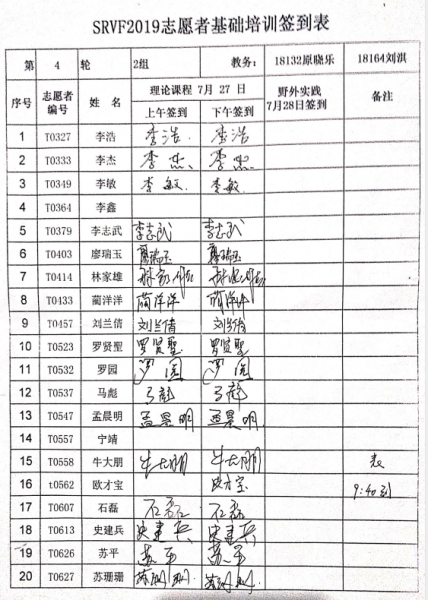 SRVF2019志愿者基础培训签到表
第 4 轮 2组 教务： 18132原晓乐 18164刘淇
序号 志愿者编号 姓名 理论课程 7月 27 日 上午签到 下午签到 野外实践 7月28日签到 备注
1 T0327 李浩 李浩 李浩
2 T0333 李杰 李杰 李杰
3 T0349 李敏 李敏 李敏
4 T0364 李鑫
5 T0379 李志武 李志武 李志武
6 T0403 廖瑞玉 廖瑞玉 廖瑞玉
7 T0414 林家雄 林家雄 林家雄
8 T0433 蔺洋洋 蔺洋洋 蔺洋洋
9 T0457 刘兰倩 刘兰倩 刘兰倩
10 T0523 罗贤聖 罗贤聖 罗贤聖
11 T0532 罗园 罗园 罗园
12 T0537 马彪 马彪 马彪
13 T0547 孟晨明 孟晨明 孟晨明
14 T0557 宁靖
15 T0558 牛大朋 牛大朋 牛大朋
16 t0562 欧才宝 欧才宝 9:40到
17 T0607 石磊 石磊 石磊
18 T0613 史建兵 史建兵 史建兵
19 T0626 苏平 苏平 苏平
20 T0627 苏珊珊 苏珊珊 苏珊珊